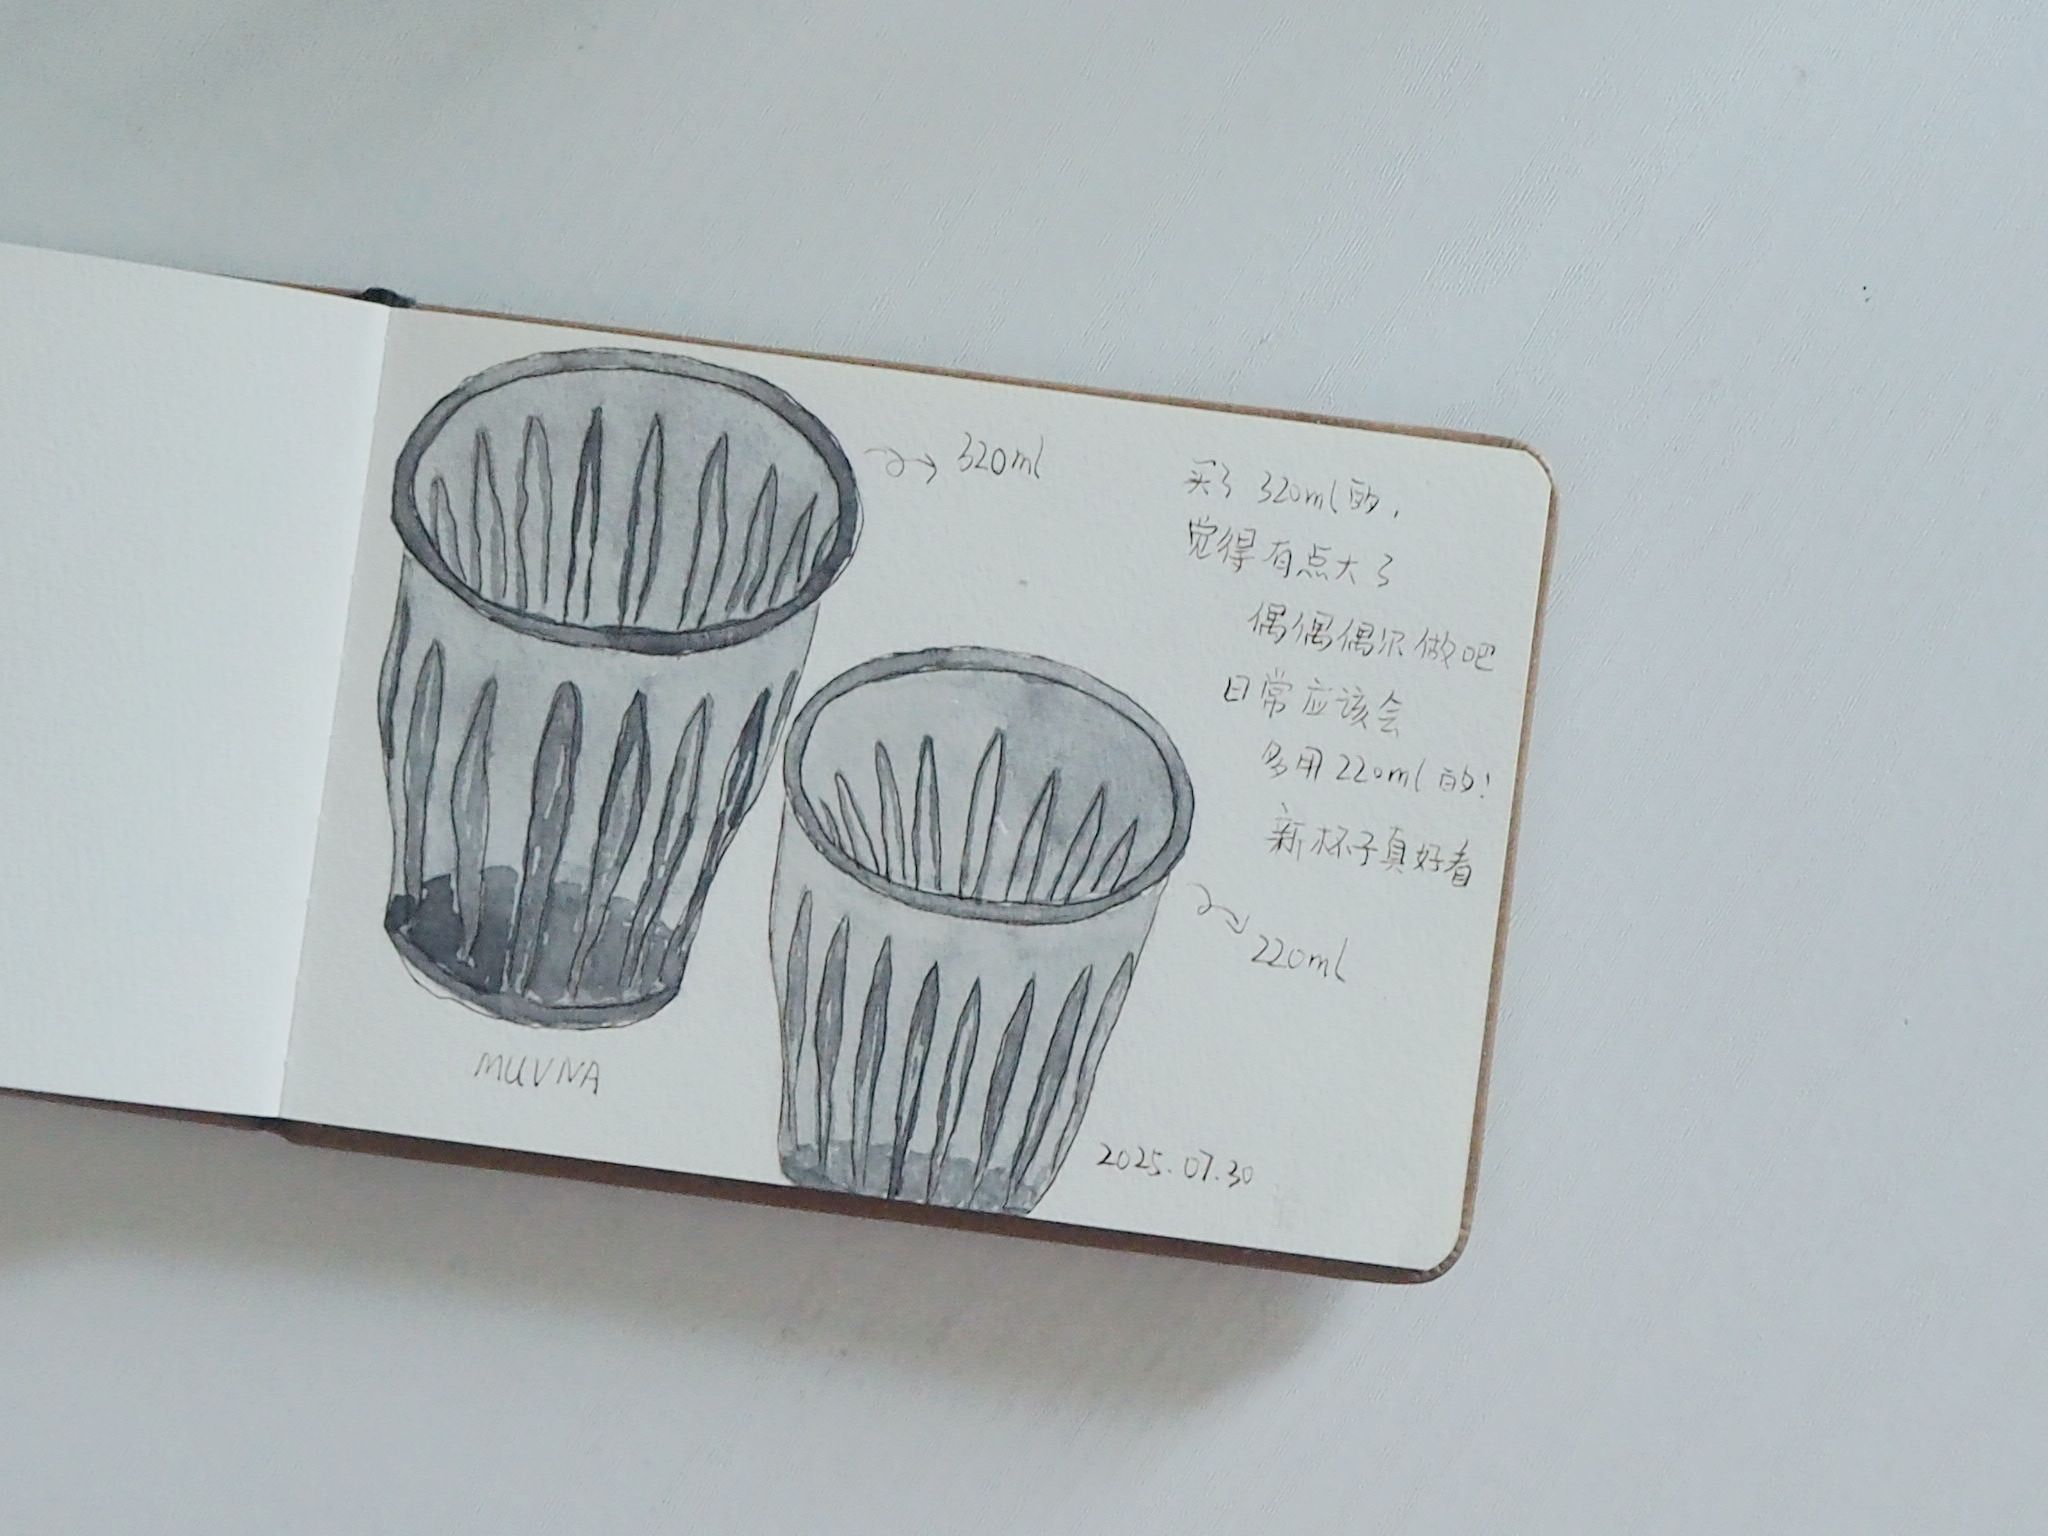 320ml
买了320ml的,
觉得有点大了
偶偶偶尔做吧
日常应该会
多用220ml的!
新杯子真好看
220ml
MUVNA
2025.07.30